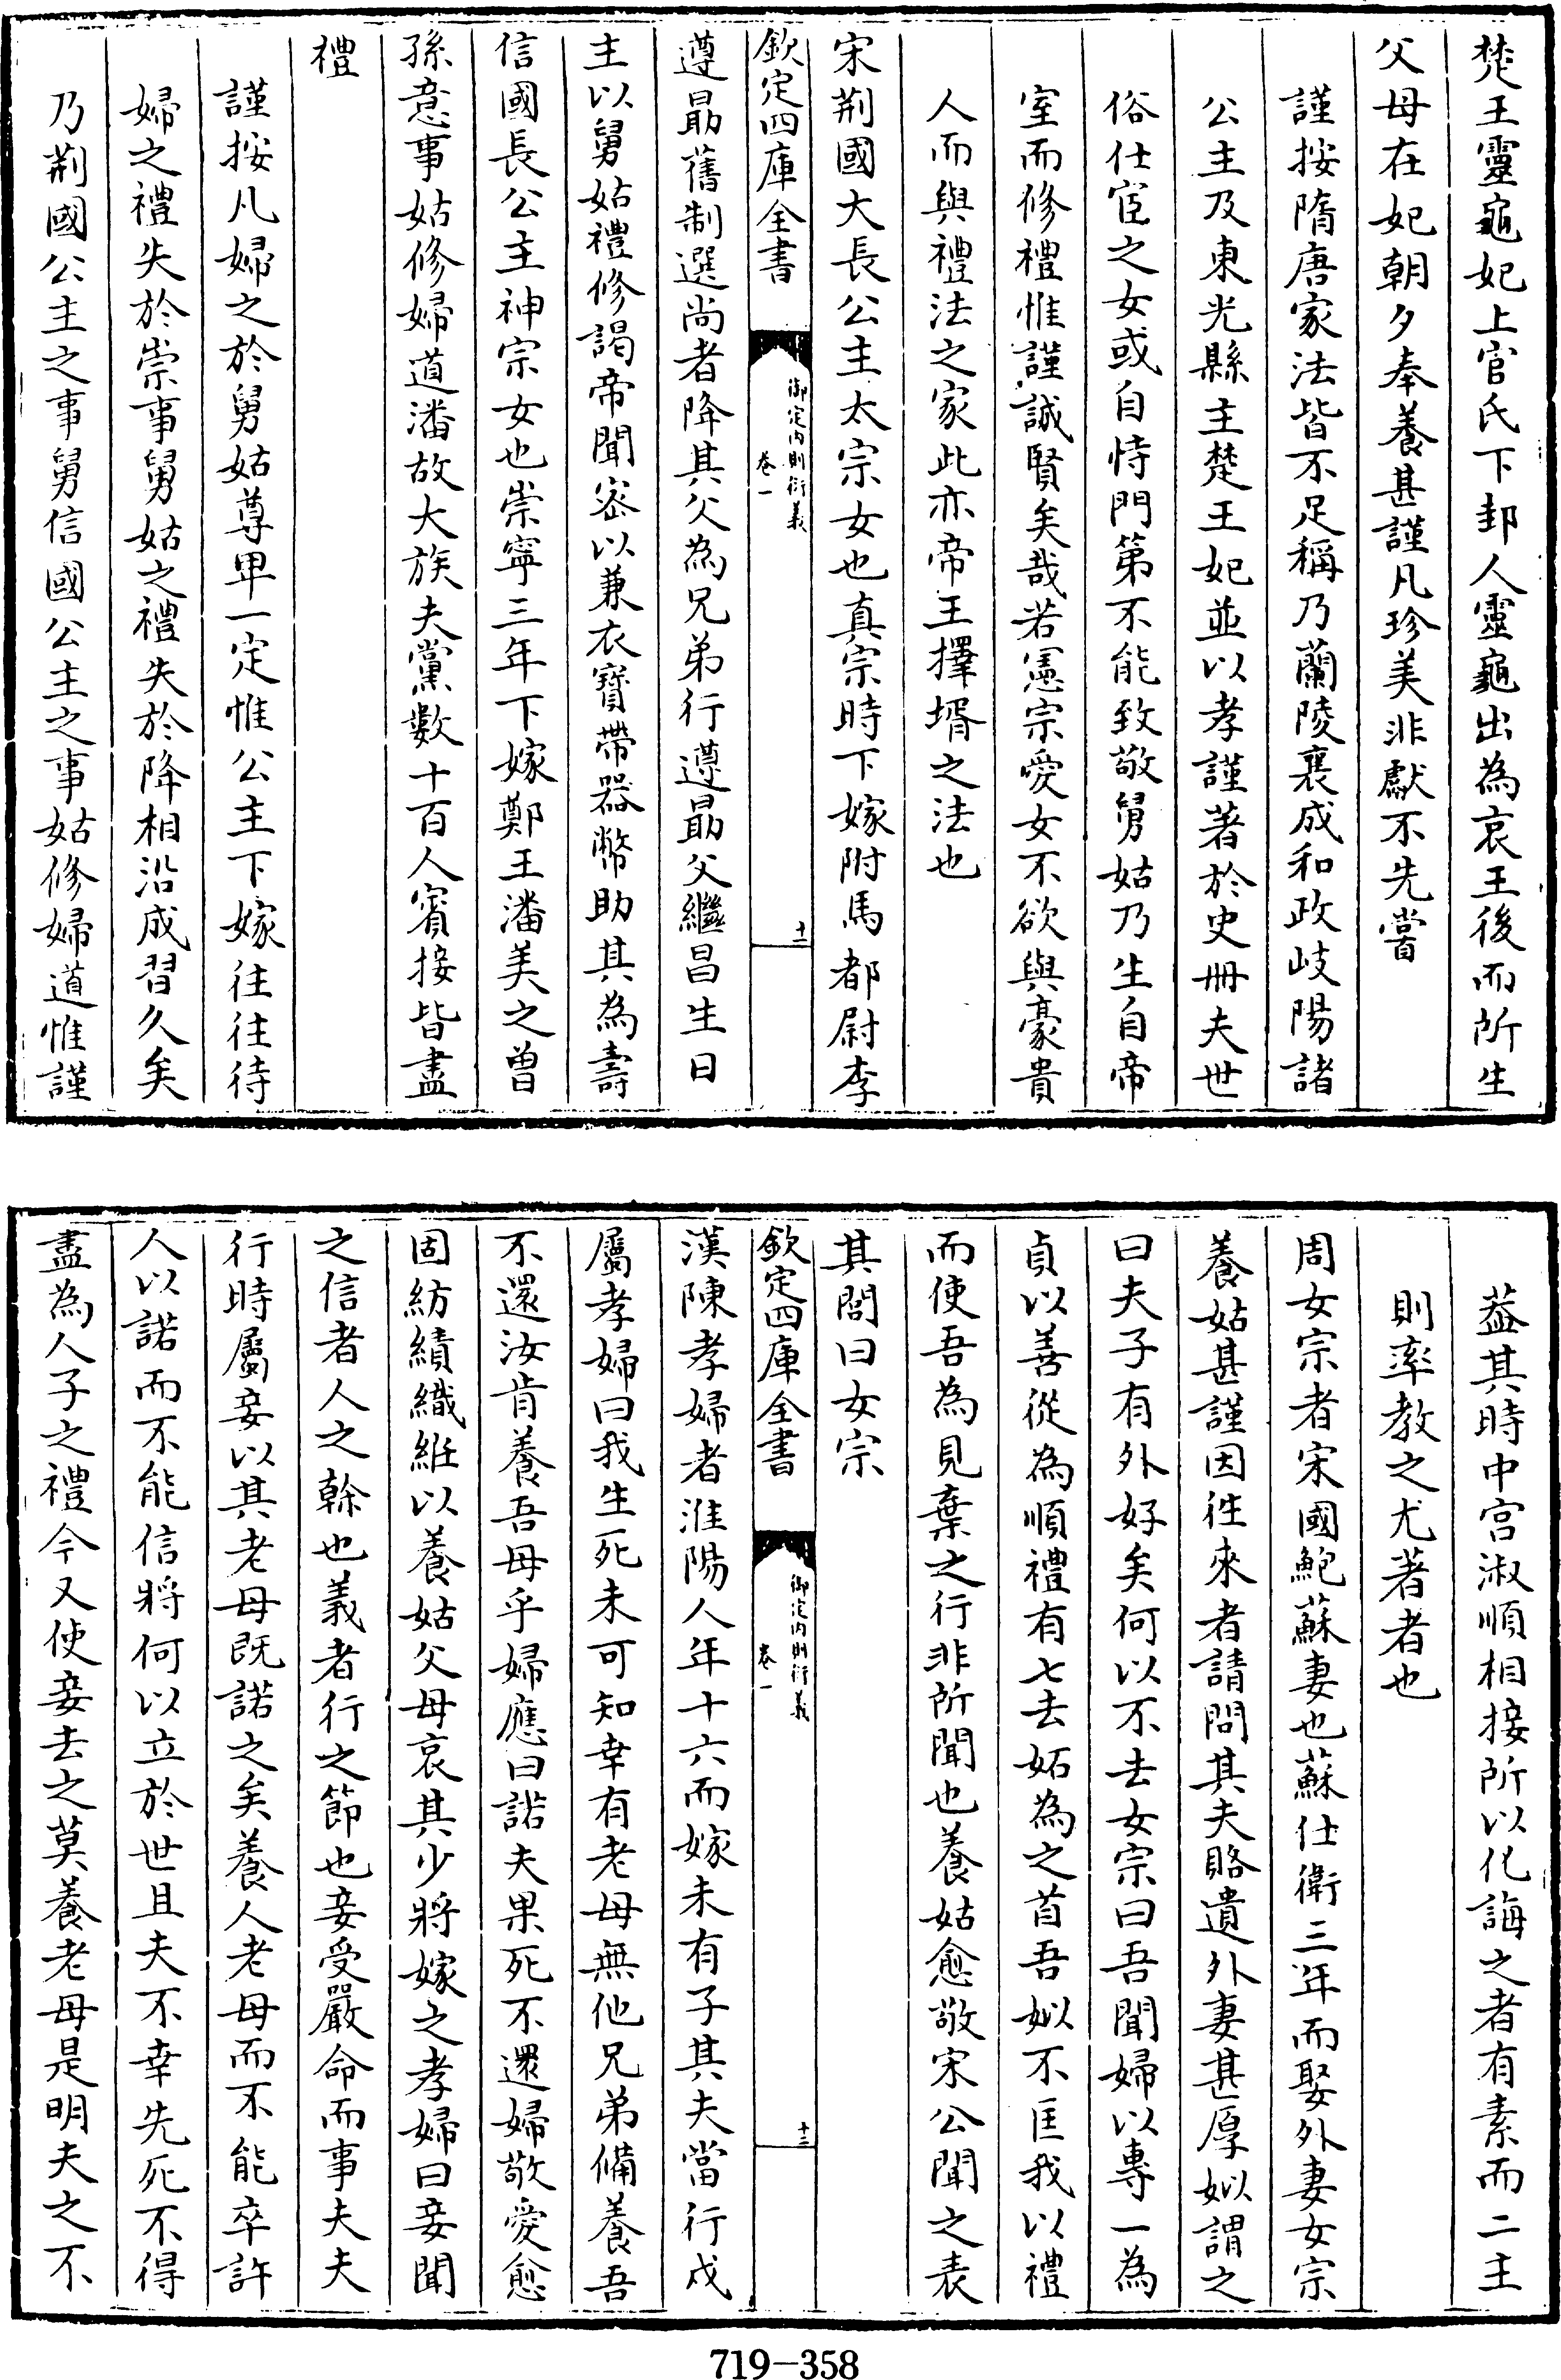 楚王靈龜妃上官氏下邽人靈龜出為哀王後而所生
父母在妃朝夕奉養甚謹凡珍美非獻不先嘗
謹按隋唐家法皆不足稱乃蘭陵襄成和政岐陽諸
公主及東光縣主楚王妃並以孝謹著於史冊夫世
俗仕宦之女或自恃門第不能致敬舅姑乃生自帝
室而修禮惟謹誠賢矣哉若憲宗愛女不欲與豪貴
人而與禮法之家此亦帝王擇壻之法也
宋荆國大長公主太宗女也真宗時下嫁附馬都尉李
欽定四庫全書
御定內則衍義
卷一
十二
遵勗舊制選尚者降其父為兄弟行遵勗父繼昌生日
主以舅姑禮修謁帝聞宻以兼衣寳帶器幣助其為壽
信國長公主神宗女也崇寧三年下嫁鄭王潘美之曾
孫意事姑修婦道潘故大族夫黨數十百人賓接皆盡
禮
謹按凡婦之於舅姑尊卑一定惟公主下嫁往往待
婦之禮失於崇事舅姑之禮失於降相沿成習久矣
乃荆國公主之事舅信國公主之事姑修婦道惟謹
葢其時中宮淑順相接所以化誨之者有素而二主
則率教之尤著者也
周女宗者宋國鮑蘇妻也蘇仕衛三年而娶外妻女宗
養姑甚謹因徃來者請問其夫賂遺外妻甚厚姒謂之
曰夫子有外好矣何以不去女宗曰吾聞婦以專一為
貞以善從為順禮有七去妬為之首吾姒不匡我以禮
而使吾為見棄之行非所聞也養姑愈敬宋公聞之表
其閭曰女宗
欽定四庫全書
御定內則衍義
卷一
十三
漢陳孝婦者淮陽人年十六而嫁未有子其夫當行戍
屬孝婦曰我生死未可知幸有老母無他兄弟備養吾
不還汝肯養吾母乎婦應曰諾夫果死不還婦敬愛愈
固紡績織絍以養姑父母哀其少將嫁之孝婦曰妾聞
之信者人之幹也義者行之節也妾受嚴命而事夫夫
行時屬妾以其老母既諾之矣養人老母而不能卒許
人以諾而不能信將何以立於世且夫不幸先死不得
盡為人子之禮今又使妾去之莫養老母是明夫之不
719-358